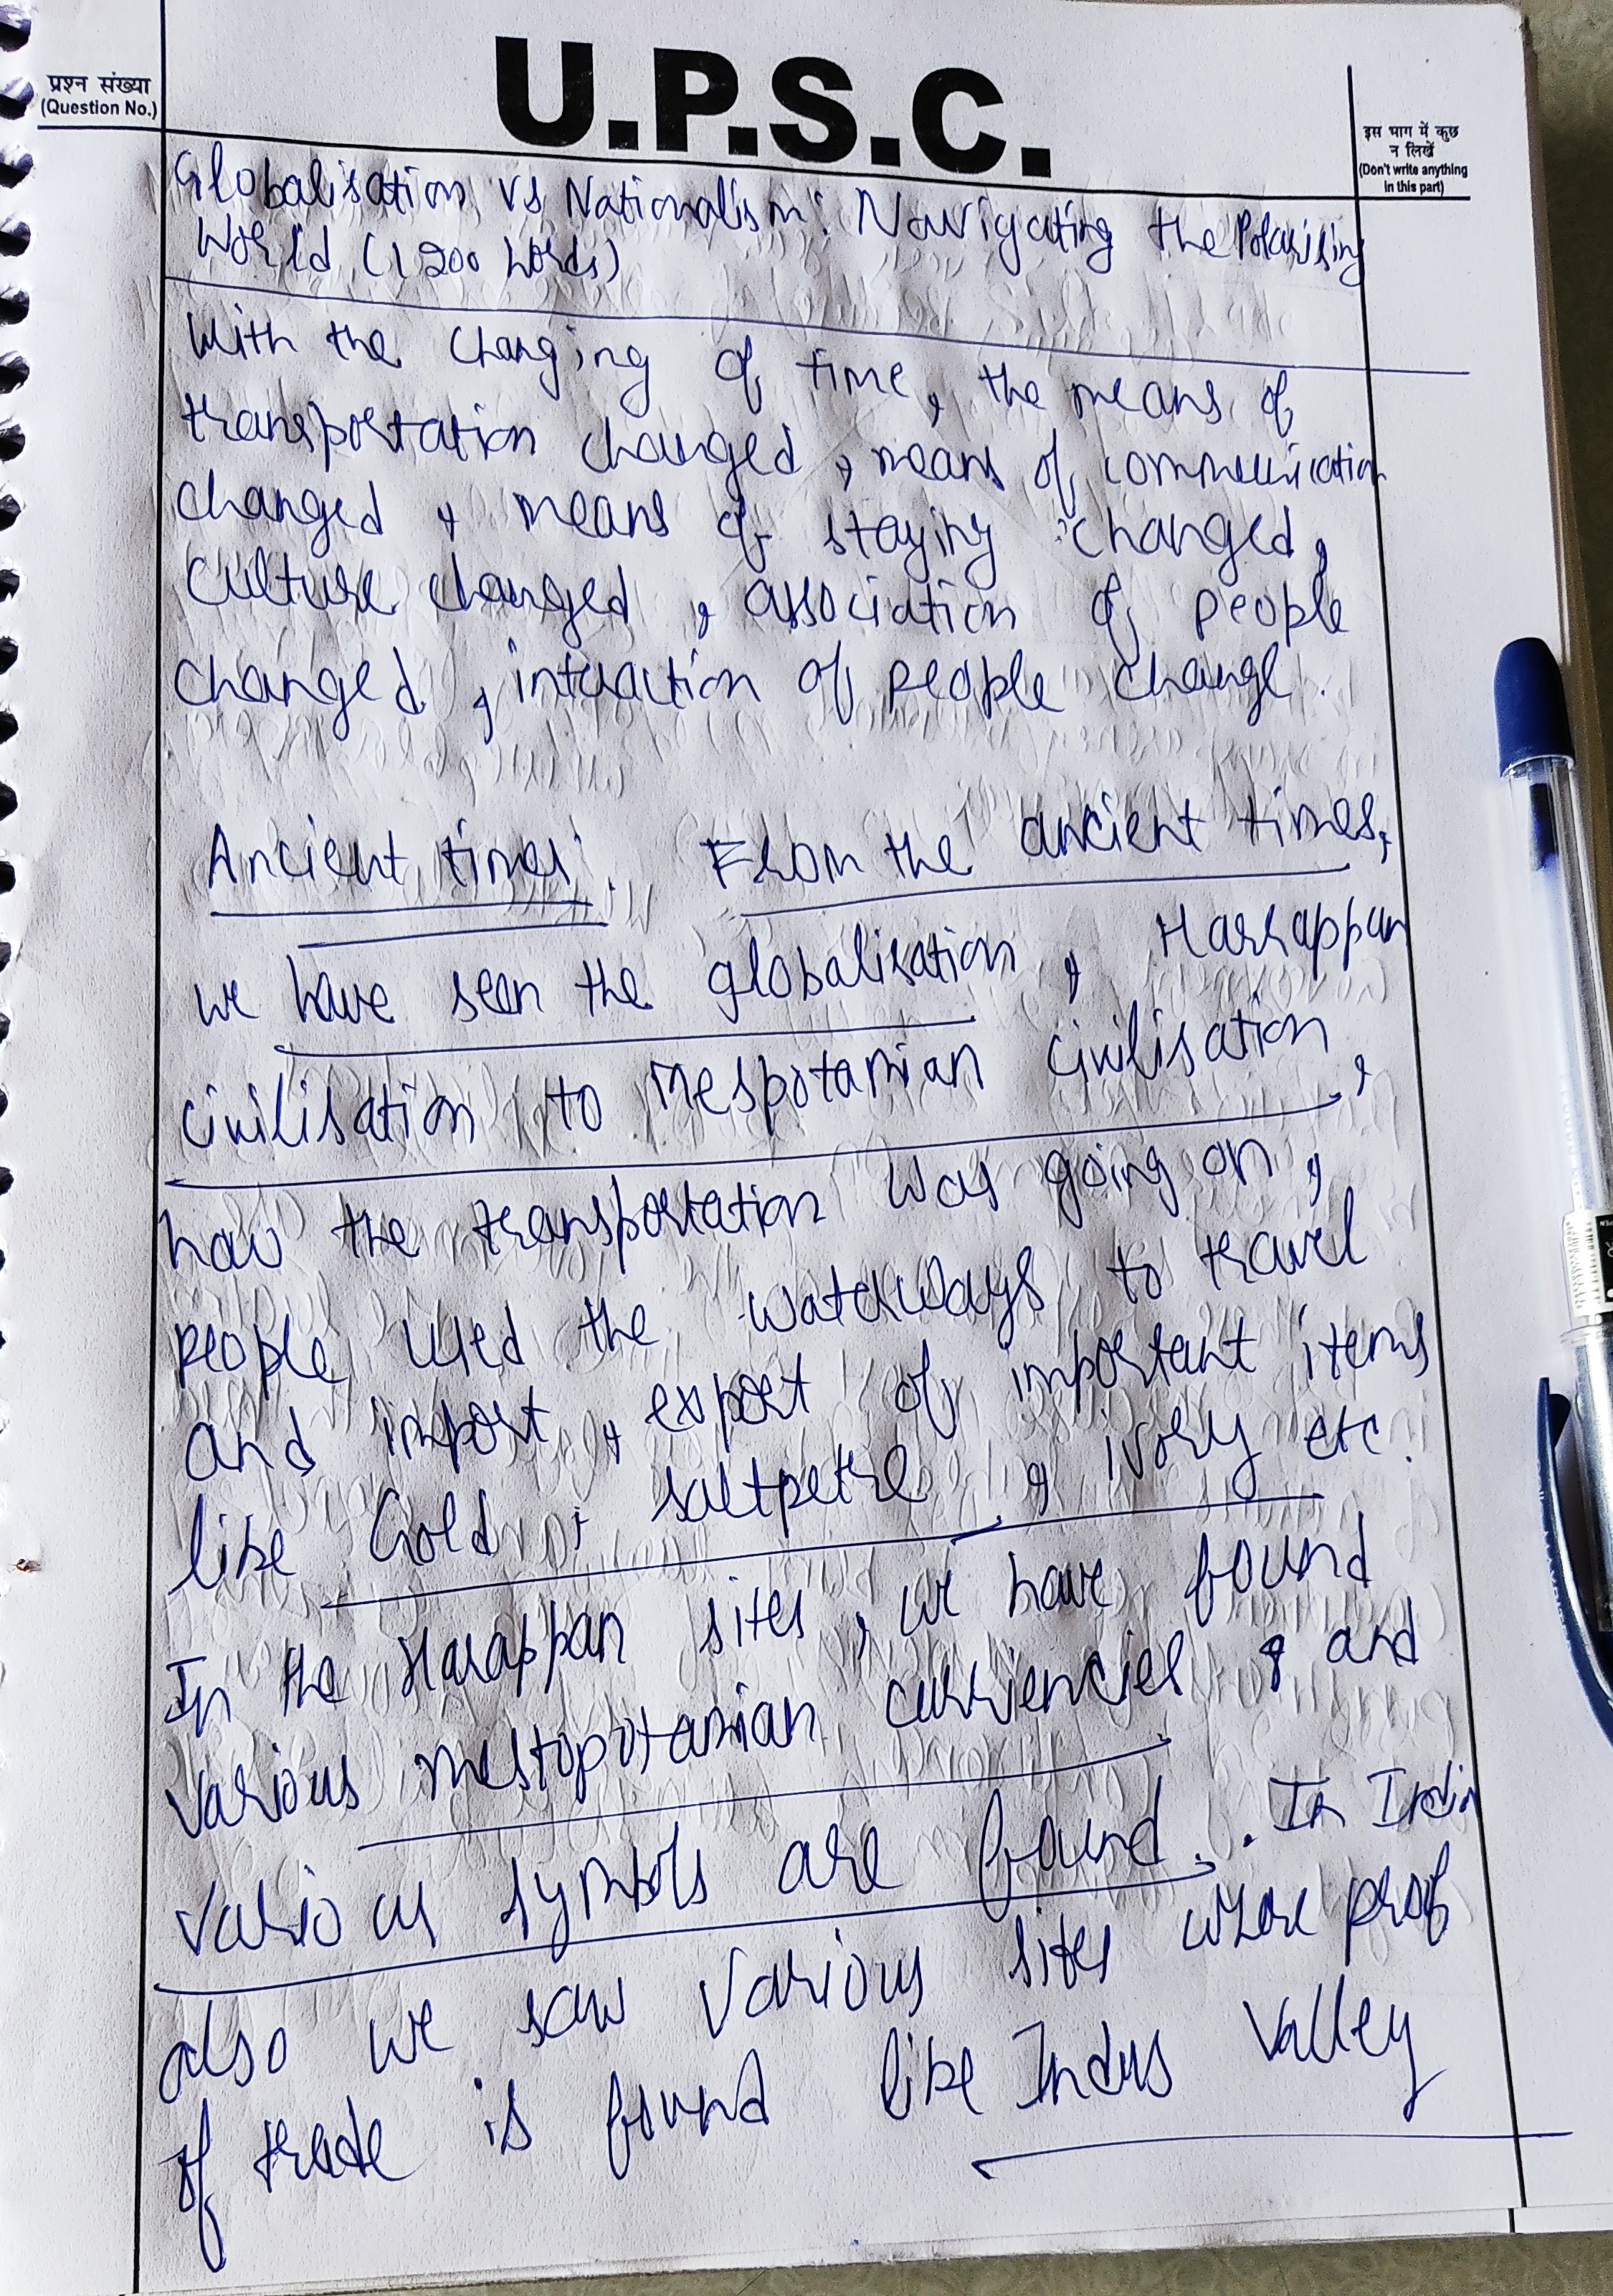 U.P.S.C.
प्रश्न संख्या
(Question No.)
इस भाग में कुछ
न लिखें
(Don't write anything
in this part)
Globalisation vs Nationalism: Navigating the Polarising
World (1200 words)
With the changing of time, the means of
transportation changed, means of communication
changed, means of staying changed,
culture changed, association of people
changed, interaction of people change.
Ancient times: From the ancient times,
we have seen the globalisation, Harrappan
civilisation to mespotamian civilisation,
how the transportation was going on,
people used the waterways to travel
and import, export of important items
like Gold, saltpetre, ivory etc.
In the Harappan sites, we have found
various mestopotamian currienciel, and
various symbols are found. . In India
also we saw various sites where proof
of trade is found like Indus Valley